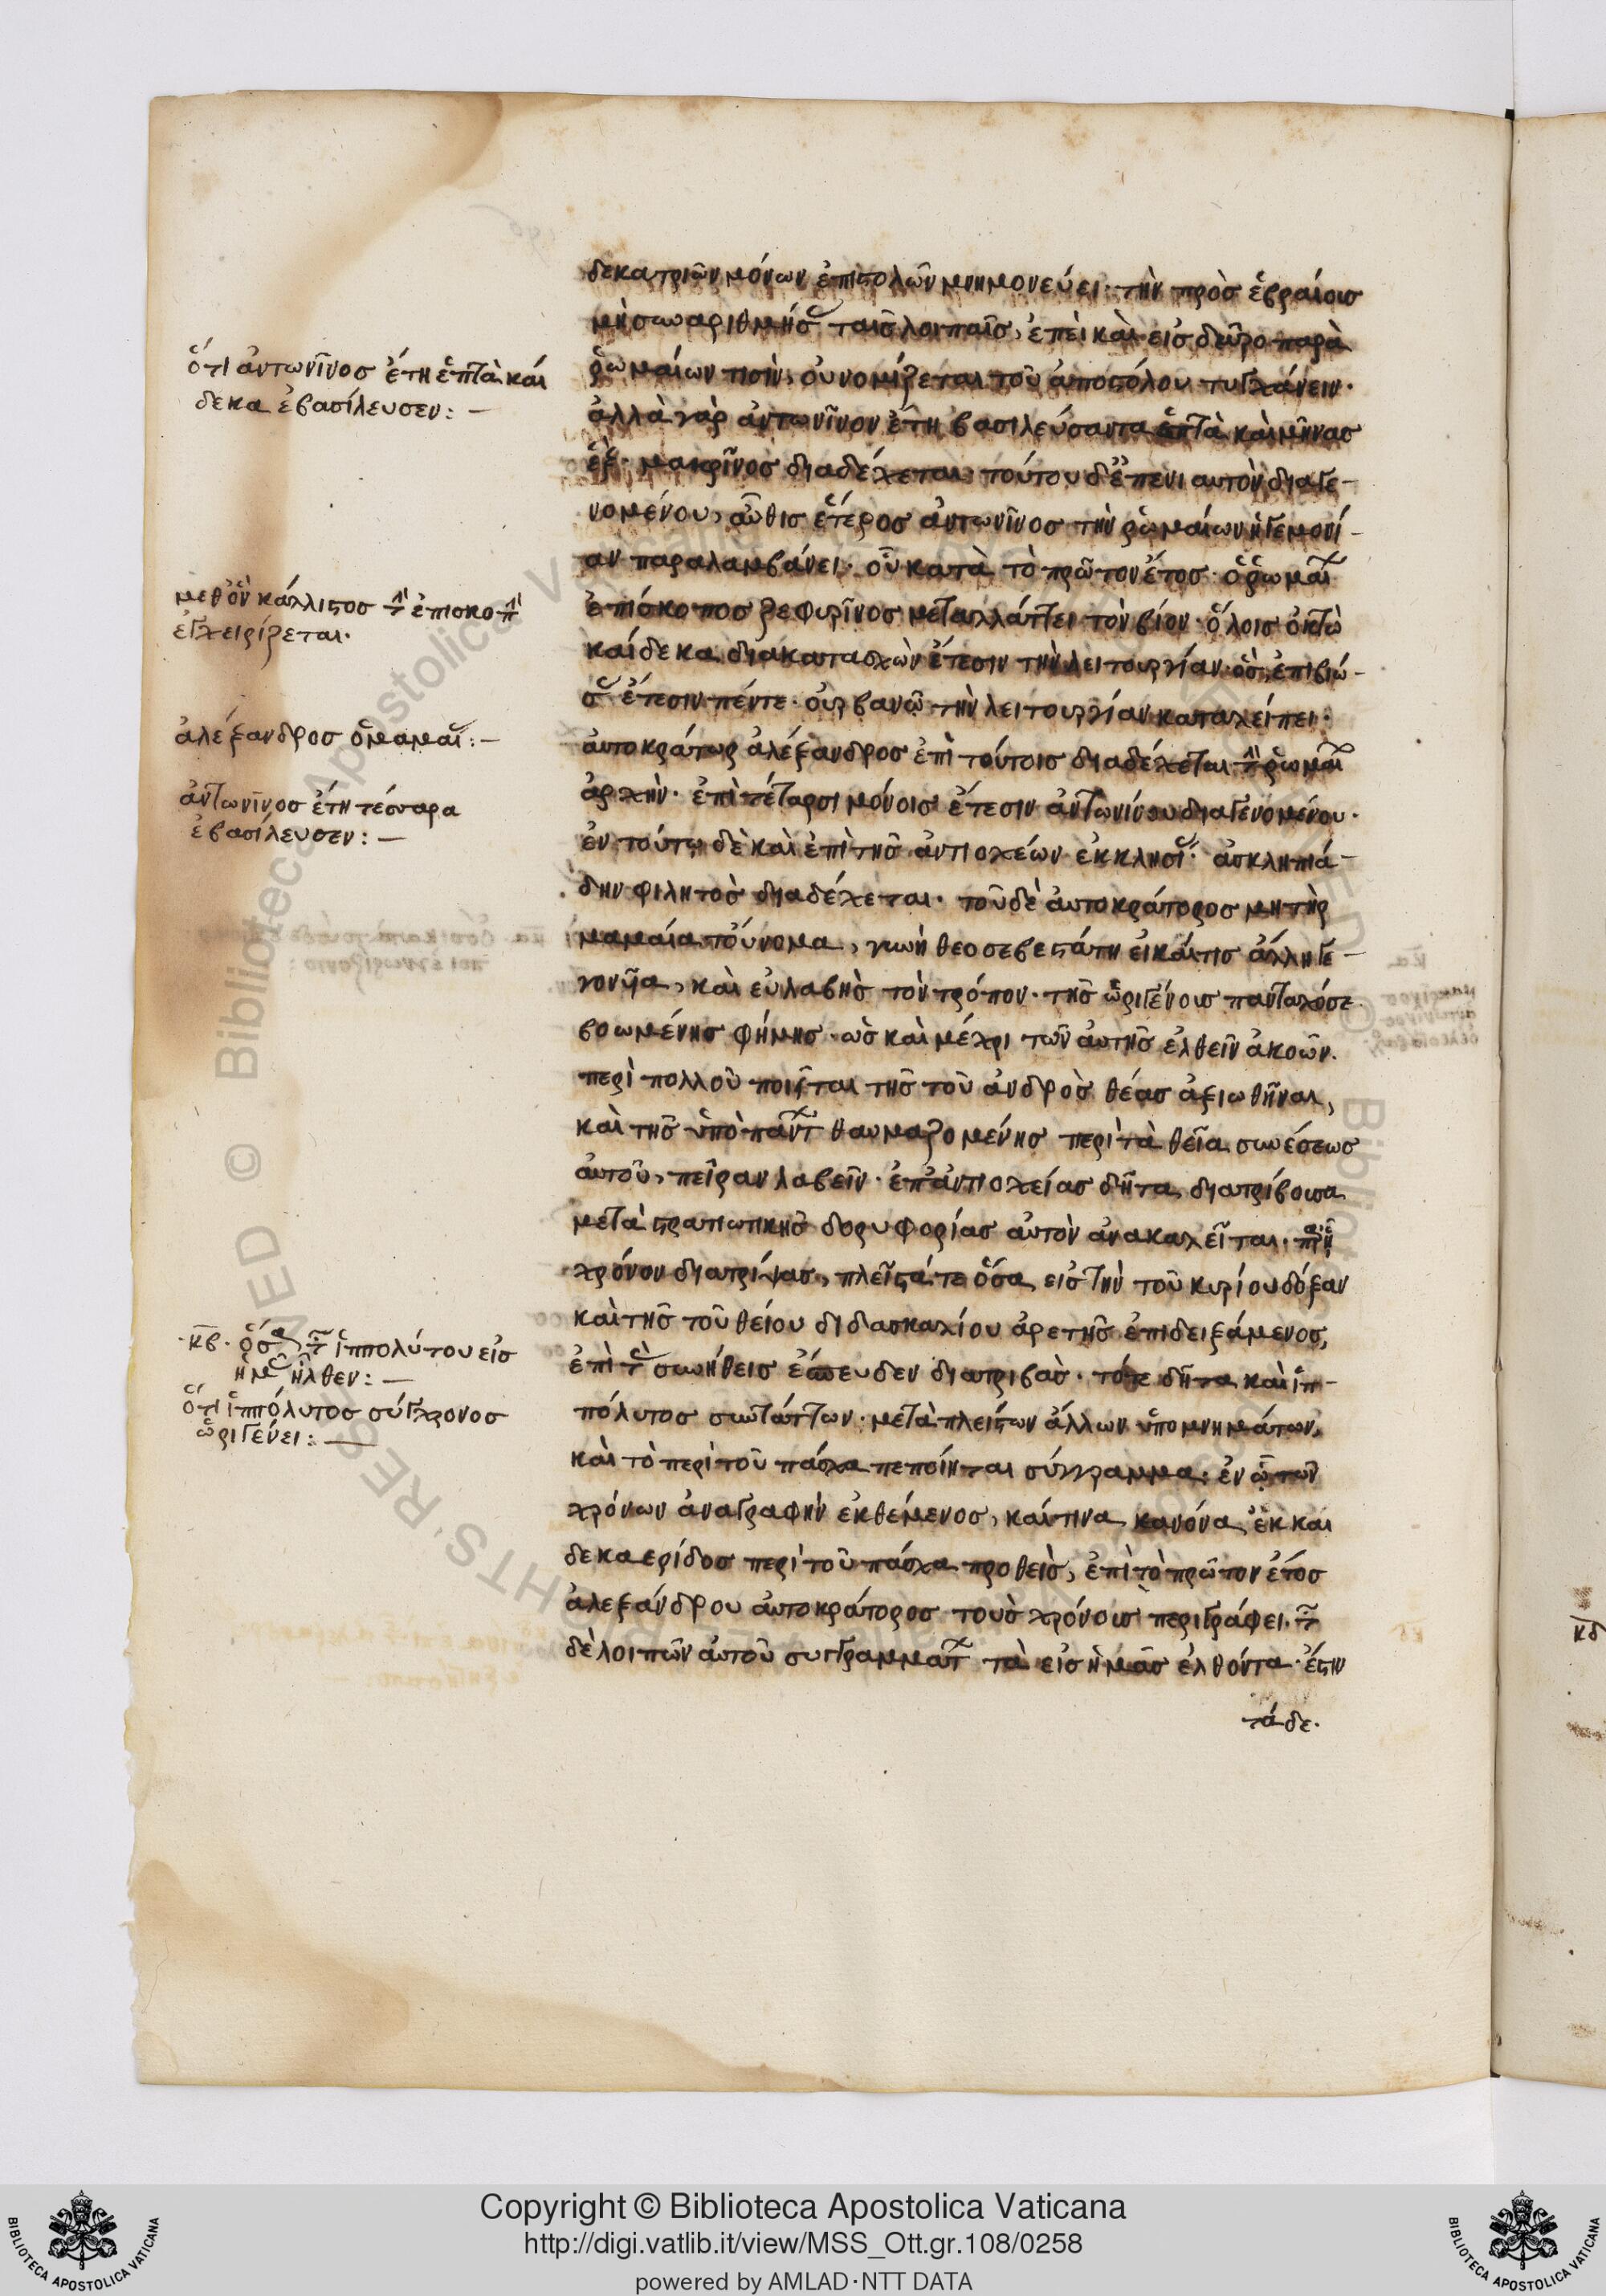 δεκατριῶν μόνων ἐπιστολῶν μνημονεύει· τὴν πρὸς ἑβραίους
μὴ συναριθμήσας ταῖς λοιπαῖς, ἐπεὶ καὶ εἰς δεῦρο παρὰ
ῥωμαίων τισὶν, οὐ νομίζεται τοῦ ἀποστόλου τυγχάνειν·
ἀλλὰ γὰρ ἀντωνῖνον ἔτη βασιλεύσαντα ἑπτὰ καὶ μῆνας
ἓξ· μακρῖνος διαδέχεται· τούτου δ' ἐπ' ἐνιαυτὸν διαγε-
νομένου, αὖθις ἕτερος ἀντωνῖνος τὴν ῥωμαίων ἡγεμονί-
αν παραλαμβάνει· οὗ κατὰ τὸ πρῶτον ἔτος· ὁ ῥωμαί
ἐπίσκοπος ζεφυρῖνος μεταλλάττει τὸν βίον· ὅλοις ὀκτὼ
καίδεκα διακατασχὼν ἔτεσιν τὴν λειτουργίαν· ὃς ἐπιβιώ-
σας ἔτεσιν πέντε· οὐρβανῶ τὴν λειτουργίαν καταλείπει·
αὐτοκράτωρ ἀλέξανδρος ἐπὶ τούτοις διαδέχεται τὴν ῥωμαί
ἀρχὴν· ἐπὶ τέταρσι μόνοις ἔτεσιν ἀντωνίνου διαγενομένου·
ἐν τούτω δὲ καὶ ἐπὶ τῆς ἀντιοχέων ἐκκλησίας· ἀσκληπιά-
δην φιλητὸς διαδέχεται· τοῦ δὲ αὐτοκράτορος μητὴρ
μαμαία τοὔνομα, γυνὴ θεοσεβεστάτη εἰ καί τις ἄλλη γε-
γονυῖα, καὶ εὐλαβὴς τὸν τρόπον· τῆς ὠριγένους πανταχόσε
βοωμένης φήμης· ὡς καὶ μέχρι τῶν αὐτῆς ἐλθεῖν ἀκοῶν·
περὶ πολλοῦ ποιεῖται τῆς τοῦ ἀνδρὸς θέας ἀξιωθῆναι,
καὶ τῆς ὑπὸ πάντων θαυμαζομένης περὶ τὰ θεῖα συνέσεως
αὐτοῦ, πεῖραν λαβεῖν· ἐπ' ἀντιοχείας δῆτα διατρίβουσα
μετὰ στρατιωτικῆς δορυφορίας αὐτὸν ἀνακαλεῖται· παρ' ᾗ
χρόνον διατρίψας, πλεῖστά τε ὅσα εἰς τὴν τοῦ κυρίου δόξαν
καὶ τῆς τοῦ θείου διδασκαλίου ἀρετῆς ἐπιδειξάμενος,
ἐπὶ τὰς συνήθεις ἔσπευδεν διατριβὰς· τότε δῆτα καὶ ἱπ-
πόλυτος συντάττων· μετὰ πλείστων ἄλλων ὑπομνημάτων,
καὶ τὸ περὶ τοῦ πάσχα πεποίηται σύγγραμμα· ἐν ᾧ τῶν
χρόνων ἀναγραφὴν ἐκθέμενος, καί τινα κανόνα ἐκκαι
δεκαερίδος περὶ τοῦ πάσχα προθεὶς, ἐπὶ τὸ πρῶτον ἔτος
ἀλεξάνδρου αὐτοκράτορος τοὺς χρόνους περιγράφει· τῶν
δὲ λοιπῶν αὐτοῦ συγγραμμάτων τὰ εἰς ἡμᾶς ἐλθόντα· ἔστιν
τάδε·
ὅτι ἀντωνῖνος ἔτη ἑπτὰ καὶ
δεκα ἐβασίλευσεν:–
μεθ' ὃν κάλλιστος τὴν ἐπισκοπὴν
ἐγχειρίζεται·
ἀλέξανδρος ὁ μαμαίας:–
ἀντωνῖνος ἔτη τέσσαρα
ἐβασίλευσεν:–
κβ· ὅσα τῶν ἱππολύτου εἰς
ἡμᾶς ἦλθεν:–
ὅτι ἱππόλυτος σύγχρονος
ὠριγένει:–
κδ
Copyright © Biblioteca Apostolica Vaticana
http://digi.vatlib.it/view/MSS_Ott.gr.108/0258
powered by AMLAD·NTT DATA
BIBLIOTECA APOSTOLICA VATICANA
BIBLIOTECA APOSTOLICA VATICANA